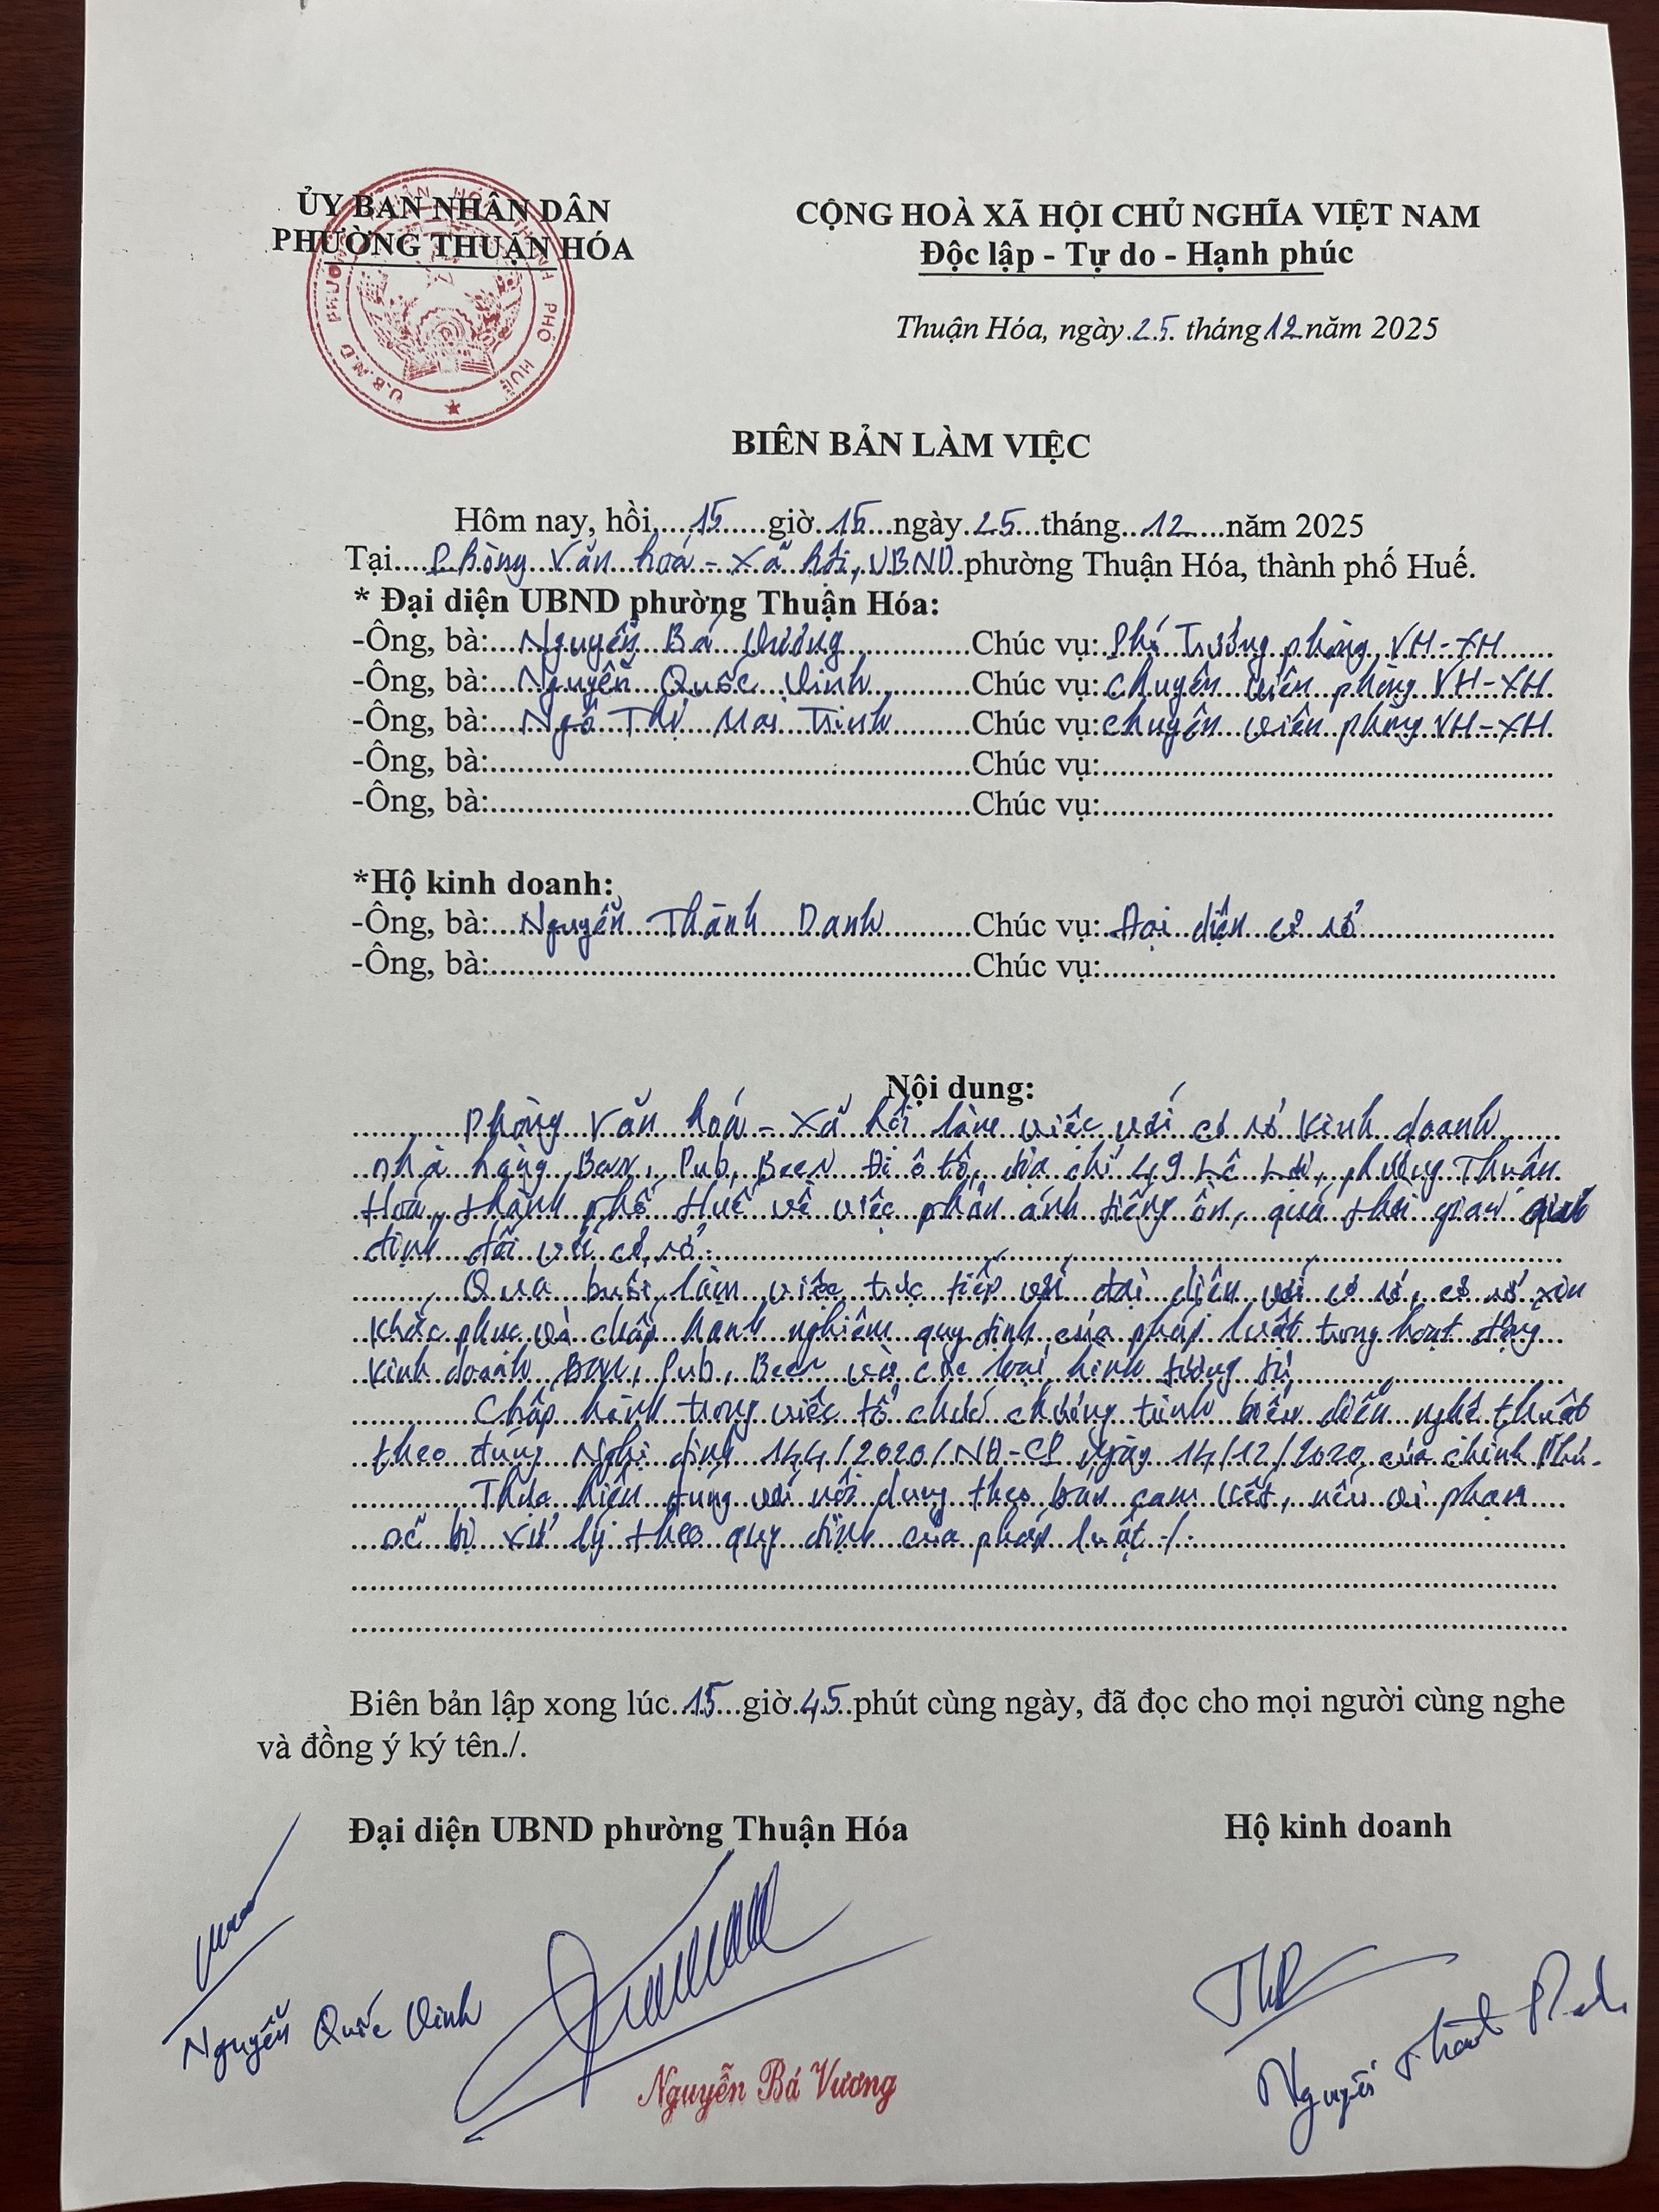 ỦY BAN NHÂN DÂN
PHƯỜNG THUẬN HÓA
CỘNG HOÀ XÃ HỘI CHỦ NGHĨA VIỆT NAM
Độc lập - Tự do - Hạnh phúc
U.B.N.D PHƯỜNG THUẬN HÓA THÀNH PHỐ HUẾ
Thuận Hóa, ngày 25 tháng 12 năm 2025
BIÊN BẢN LÀM VIỆC
Hôm nay, hồi 15 giờ 15 ngày 25 tháng 12 năm 2025
Tại Phòng Văn hoá - Xã hội, UBND phường Thuận Hóa, thành phố Huế.
* Đại diện UBND phường Thuận Hóa:
-Ông, bà: Nguyễn Bá Vương Chúc vụ: Phó Trưởng phòng VH-XH
-Ông, bà: Nguyễn Quốc Vinh Chúc vụ: Chuyên viên phòng VH-XH.
-Ông, bà: Ngô Thị Mai Trinh Chúc vụ: chuyên viên phòng VH-XH.
-Ông, bà: Chúc vụ:
-Ông, bà: Chúc vụ:
*Hộ kinh doanh:
-Ông, bà: Nguyễn Thành Danh Chúc vụ: Đại diện cơ sở
-Ông, bà: Chúc vụ:
Nội dung:
Phòng Văn hoá - Xã hội làm việc với cơ sở kinh doanh
nhà hàng Bar, Pub, Beer Đi ô tô, địa chỉ 49 Lê Lợi, phường Thuận
Hoá, thành phố Huế về việc phản ánh tiếng ồn, quá thời gian quy
định đối với cơ sở.
Qua buổi làm việc trực tiếp với đại diện với cơ sở, cơ sở xin
khắc phục và chấp hành nghiêm quy định của pháp luật trong hoạt động
kinh doanh Bar, Pub, Beer và các loại hình tương tự
Chấp hành trong việc tổ chức chương trình biểu diễn nghệ thuật
theo đúng Nghị định 144/2020/NĐ-CP ngày 14/12/2020 của Chính Phủ.
Thực hiện đúng với nội dung theo bản cam kết, nếu vi phạm
sẽ bị xử lý theo quy định của pháp luật ./.
Biên bản lập xong lúc 15 giờ 45 phút cùng ngày, đã đọc cho mọi người cùng nghe
và đồng ý ký tên./.
Đại diện UBND phường Thuận Hóa
Hộ kinh doanh
Nguyễn Quốc Vinh
Nguyễn Bá Vương
Nguyễn Thành Danh